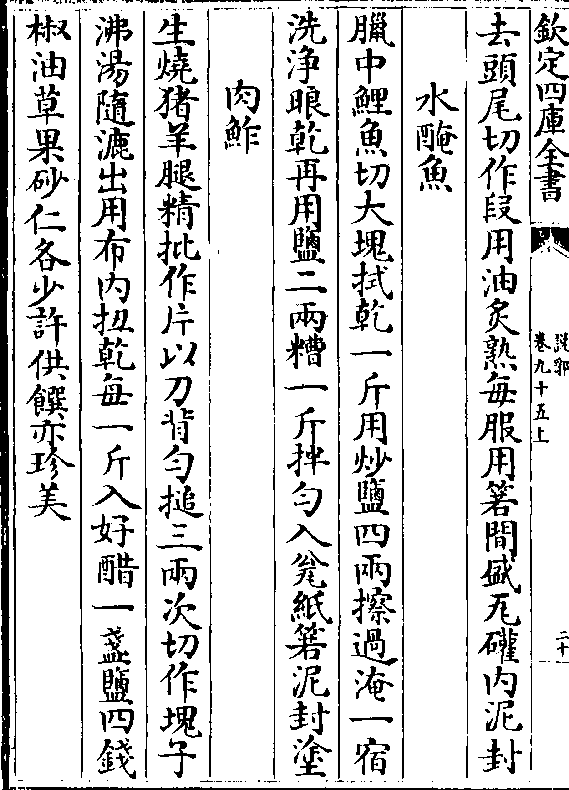 欽定四庫全書
說郛
卷九十五上
二十
去頭尾切作段用油炙熟每服用箬間盛瓦礶内泥封
水醃魚
臘中鯉魚切大塊拭乾一斤用炒鹽四兩擦過淹一宿
洗淨晾乾再用鹽二兩糟一斤拌勻入瓮紙箬泥封塗
肉鮓
生燒猪羊腿精批作片以刀背勻搥三兩次切作塊子
沸湯隨漉出用布内扭乾每一斤入好醋一盞鹽四錢
椒油草果砂仁各少許供饌亦珍美